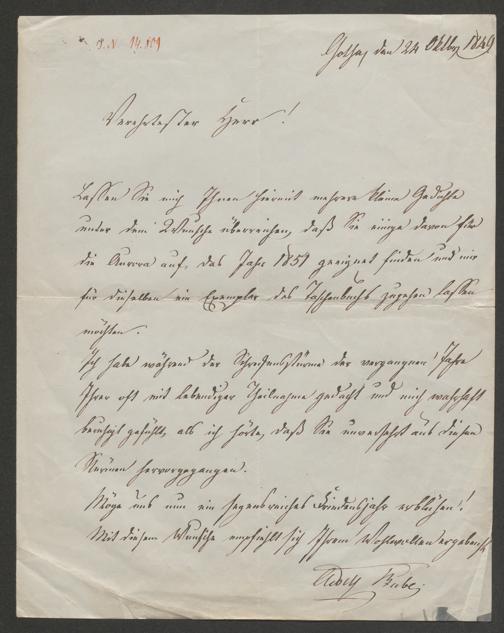 I.N 14.101
Gotha, den 24 Oktbr 1849
Verehrtester Herr!
Lassen Sie mich Ihnen hiermit mehrere kleine Gedichte
unter dem Wunsche überreichen, daß Sie einige davon für
die Aurora auf das Jahr 1851 geeignet finden und mir
für dieselben ein Exemplar des Taschenbuchs zugehen lassen
möchten.
Ich habe während der Schreckensstürme der vergangnen Jahre
Ihrer oft mit lebendiger Theilnahme gedacht und mich wahrhaft
beruhigt gefühlt, als ich hörte, daß Sie unversehrt aus diesen
Stürmen hervorgegangen.
Möge uns nun ein segensreiches Friedensjahr erblühen!
Mit diesem Wunsche empfiehlt sich Ihrem Wohlwollen ergebenst
Adolf Bube